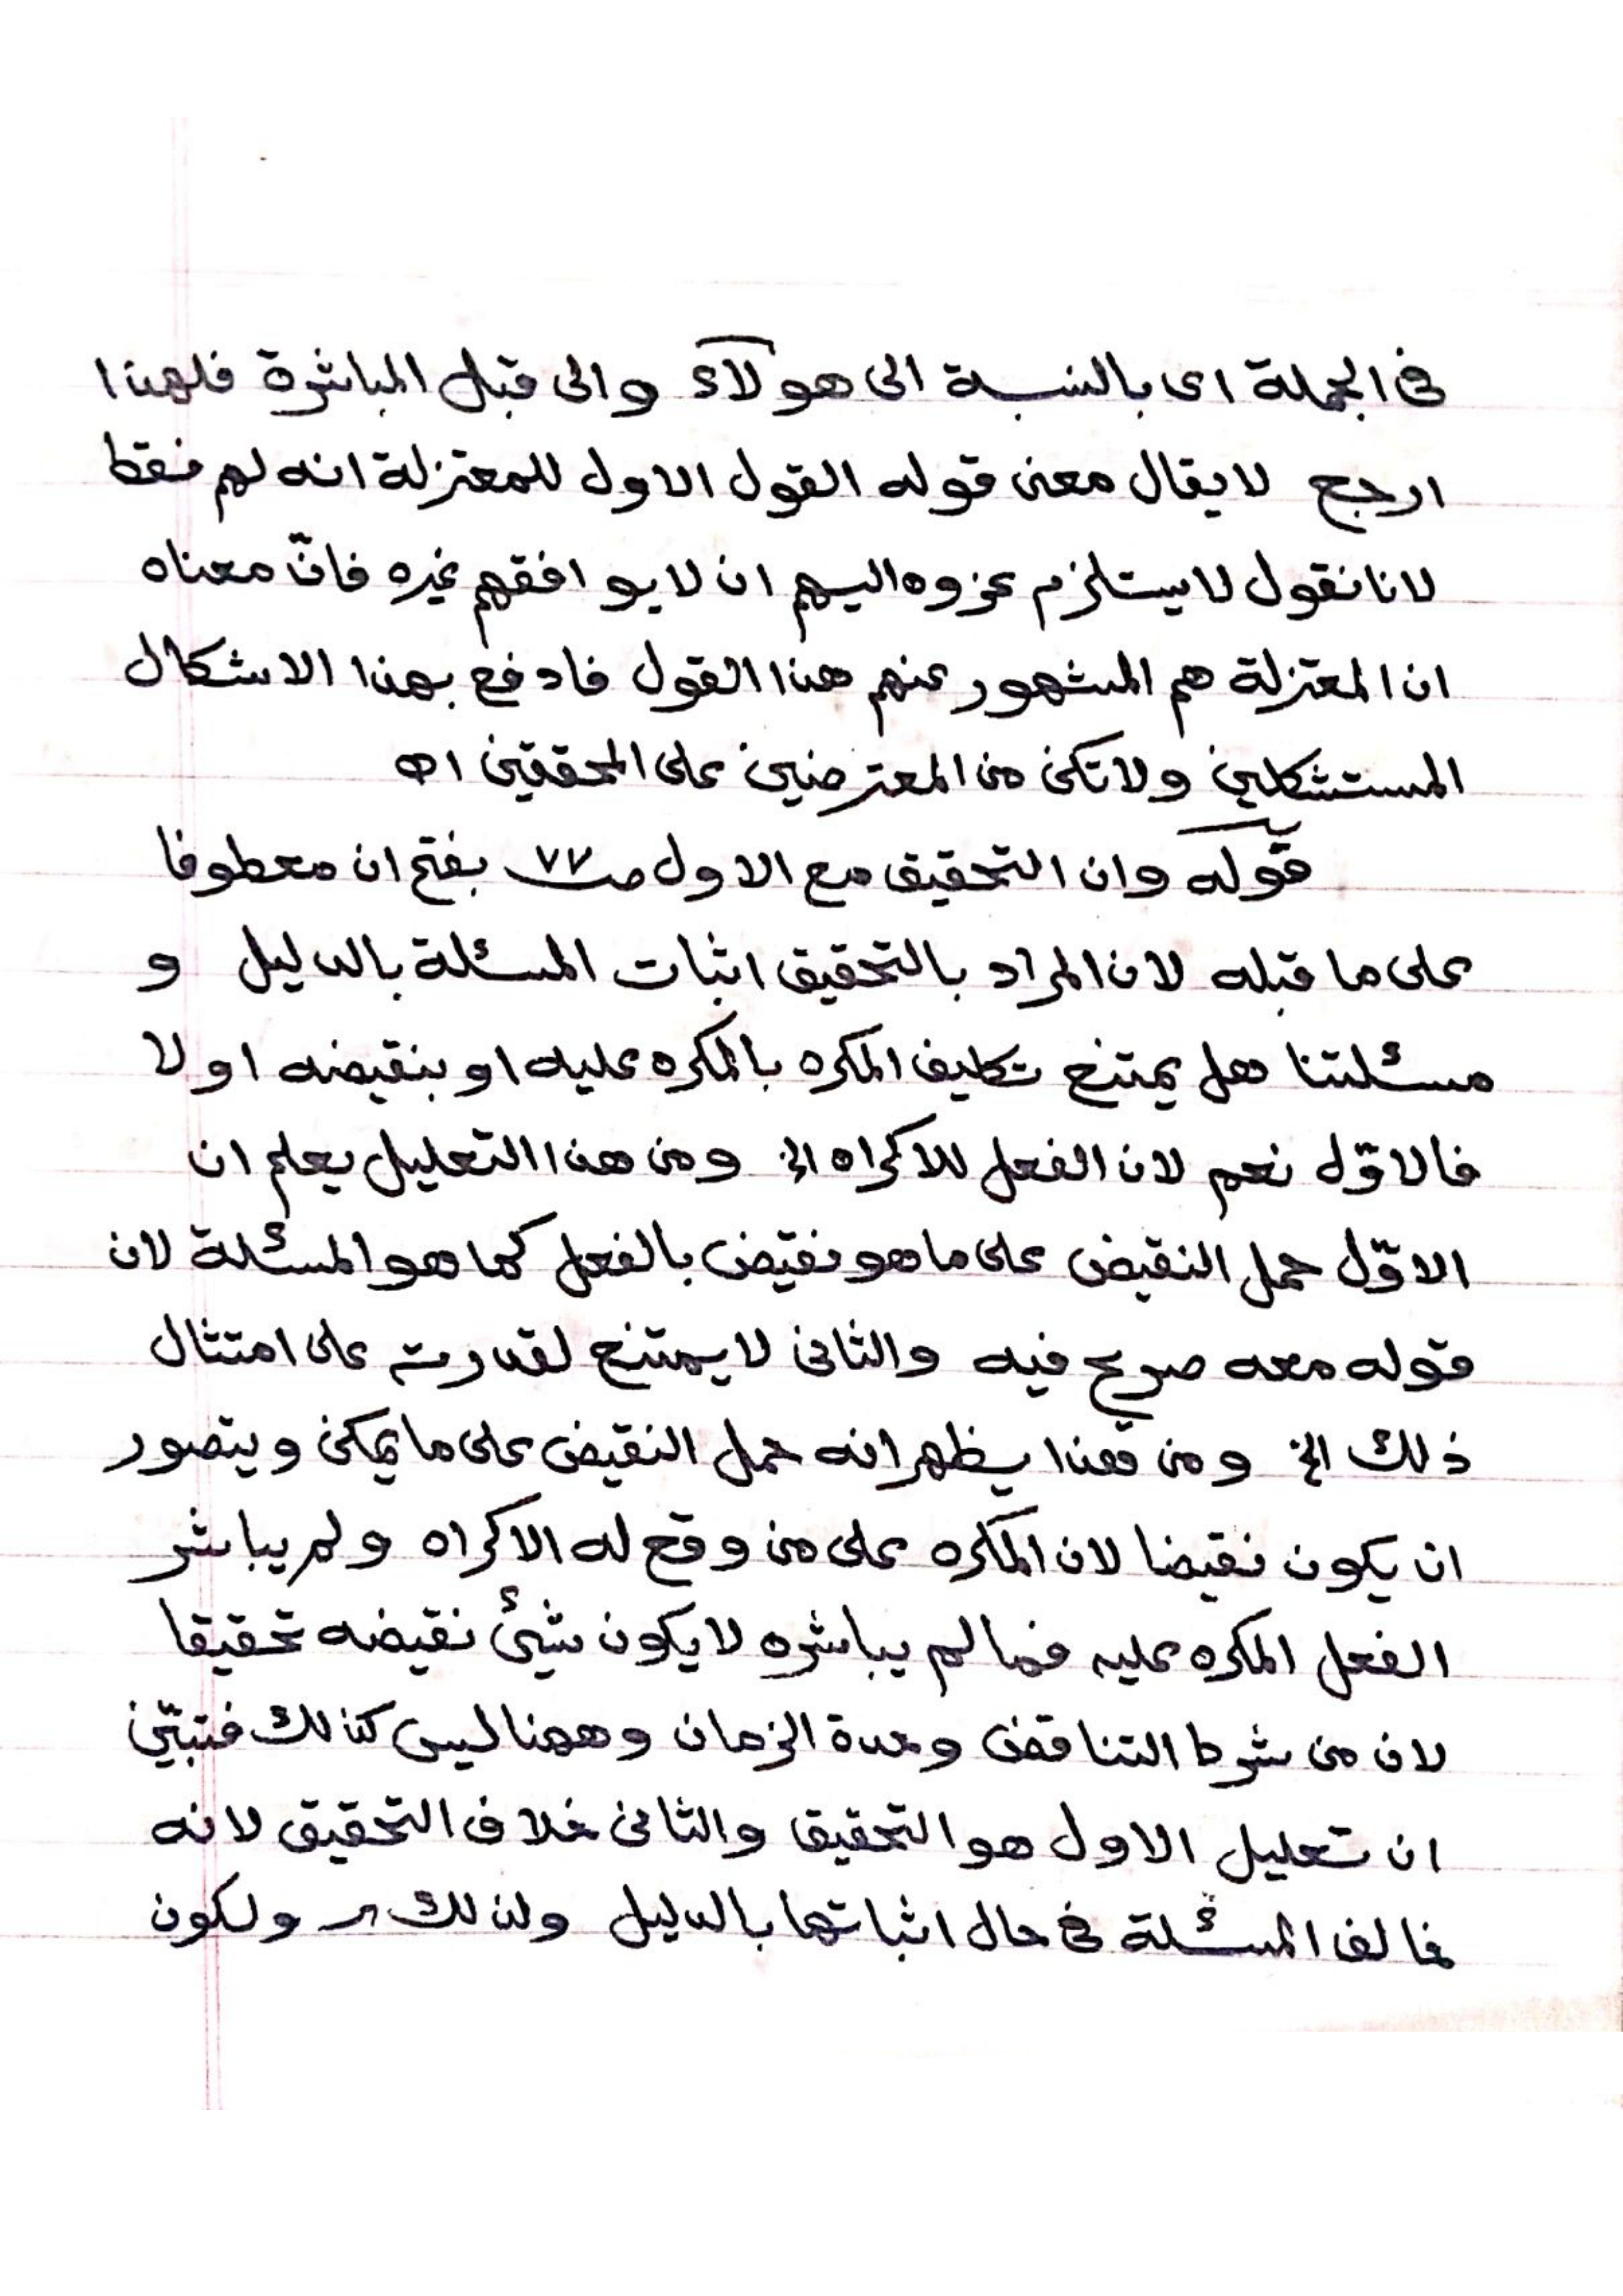 فى الجملة اى بالنسبة الى هولاء والى قبل المباشرة فلهذا
ارجح لا يقال معنى قوله القول الاول للمعتزلة انه لهم فقط
لانا نقول لا يستلزم عزوه اليهم ان لا يوافقهم غيره فانّ معناه
ان المعتزلة هم المشهور عنهم هذا القول فادفع بهذا الاشكال
المستشكلين ولا تكن من المعترضين على المحققين اھ
قوله وان التحقيق مع الاول صـ ٧٧ بفتح ان معطوفا
على ما قبله لان المراد بالتحقيق اثبات المسئلة بالدليل و
مسئلتنا هل يمتنع تكليف المكره بالمكره عليه او بنقيضه اولا
فالاوّل نعم لان الفعل للاكراه الخ ومن هذا التعليل يعلم ان
الاوّل حمل النقيض على ما هو نقيض بالفعل كما هو المسئلة لان
قوله معه صريح فيه والثانى لا يمتنع لقدرته على امتثال
ذلك الخ ومن هذا يظهر انه حمل النقيض على ما يمكن ويتصور
ان يكون نقيضا لان المكره على من وقع له الاكراه ولم يباشر
الفعل المكره عليه فما لم يباشره لا يكون شيئ نقيضه تحقيقا
لان من شرط التناقض وحدة الزمان وههنا ليس كذلك فتبيّن
ان تعليل الاول هو التحقيق والثانى خلاف التحقيق لانه
خالف المسئلة فى حال اثباتها بالدليل ولذلك ولكون